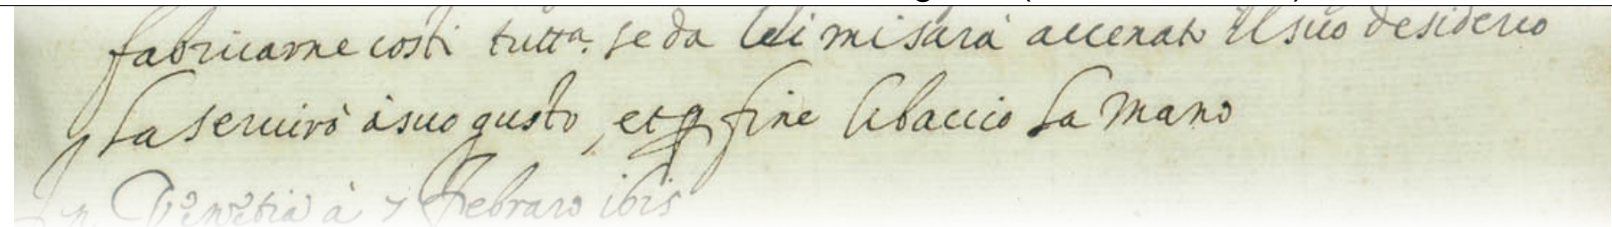 fabricarne costi tutta. se da lei mi sarà accenato il suo desiderio
la seruirò à suo gusto, et p fine li baccio la mano
Venetia à 7 Febraro